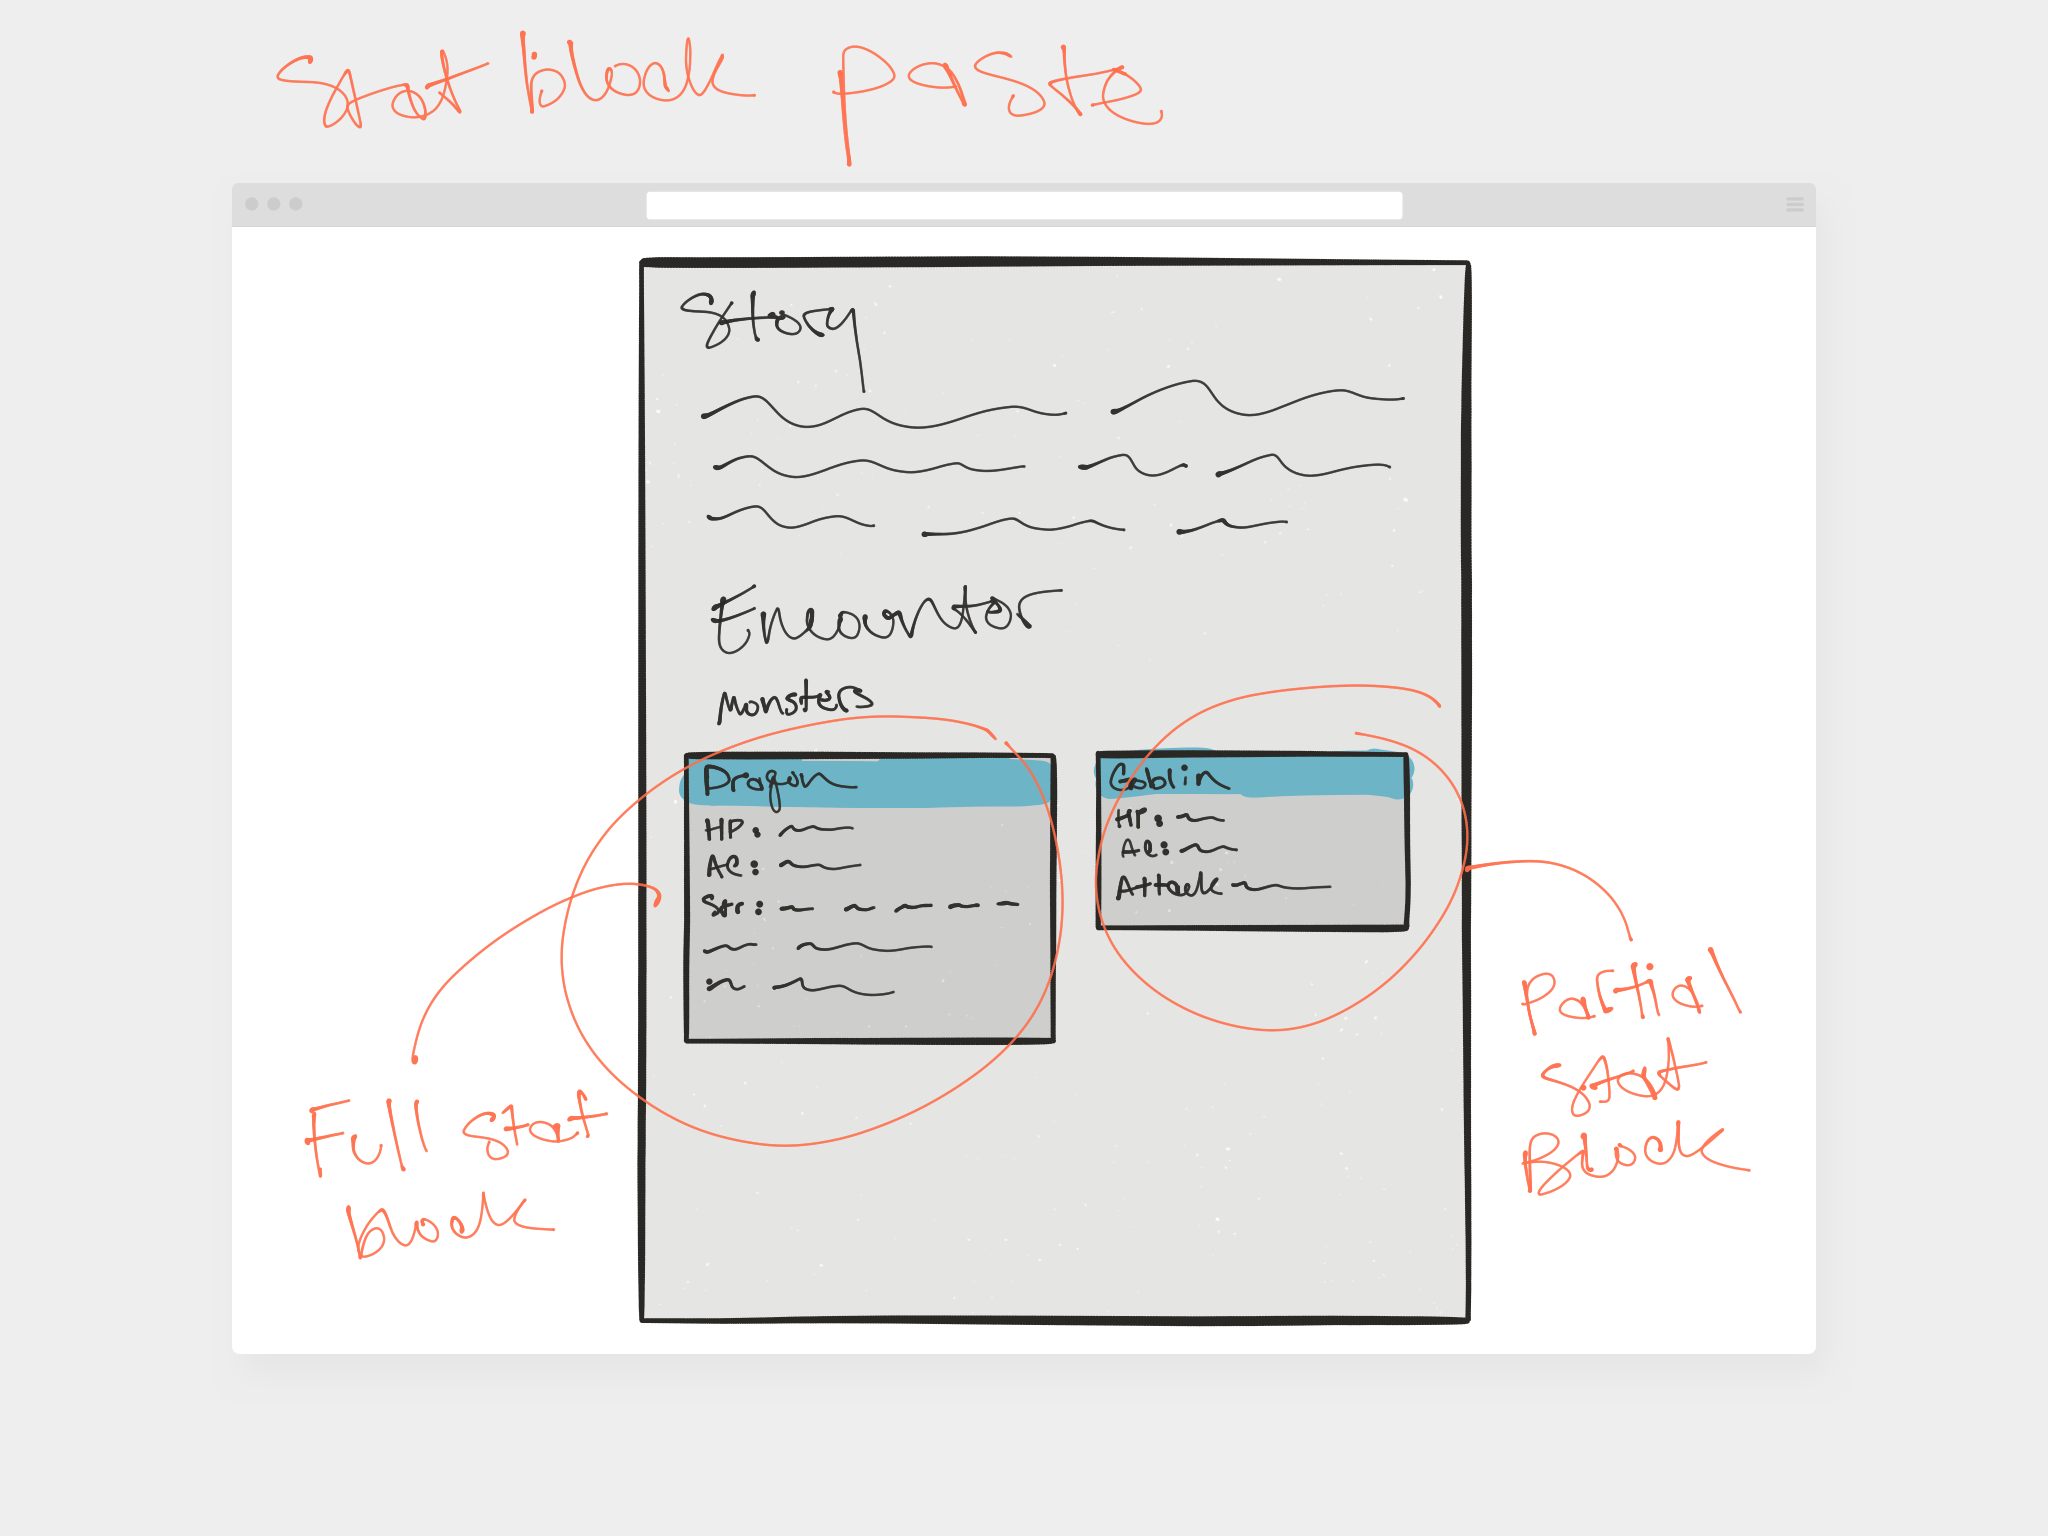 Stat block paste
Story
Encounter
Monsters
Dragon
HP:
AC:
Str:
Goblin
HP:
AC:
Attack
Full stat
block
Partial
stat
Block